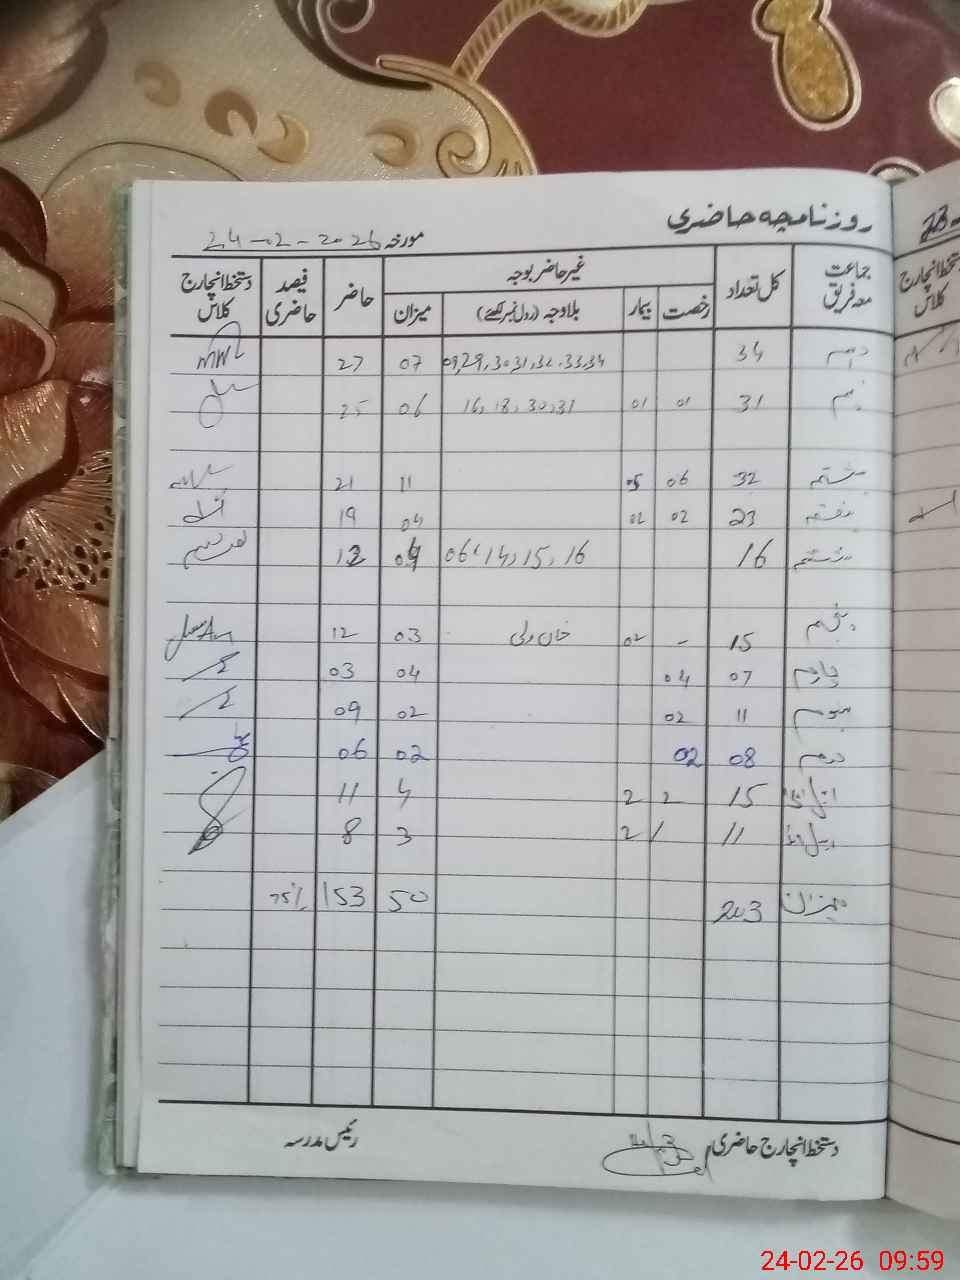 روزنامچہ حاضری
مورخہ 24-02-2026
جماعت معہ فریق کل تعداد غیر حاضر بوجہ حاضر فیصد حاضری دستخط انچارج کلاس
رخصت بیمار بلاوجہ (رول نمبر لکھئے) میزان
دہم 34 09,29,30,31,32,33,34 07 27
نہم 31 01 01 16,18,30,31 06 25
ہشتم 32 06 05 11 21
ہفتم 23 02 02 04 19
ششم 16 06,14,15,16 04 12
پنجم 15 - 02 خان ولی 03 12
چہارم 07 04 04 03
سوم 11 02 02 09
دوم 08 02 02 06
15 2 2 4 11
11 1 2 3 8
میزان 203 50 153 75%
دستخط انچارج حاضری رئیس مدرسہ
23
دستخط انچارج کلاس
24-02-26 09:59